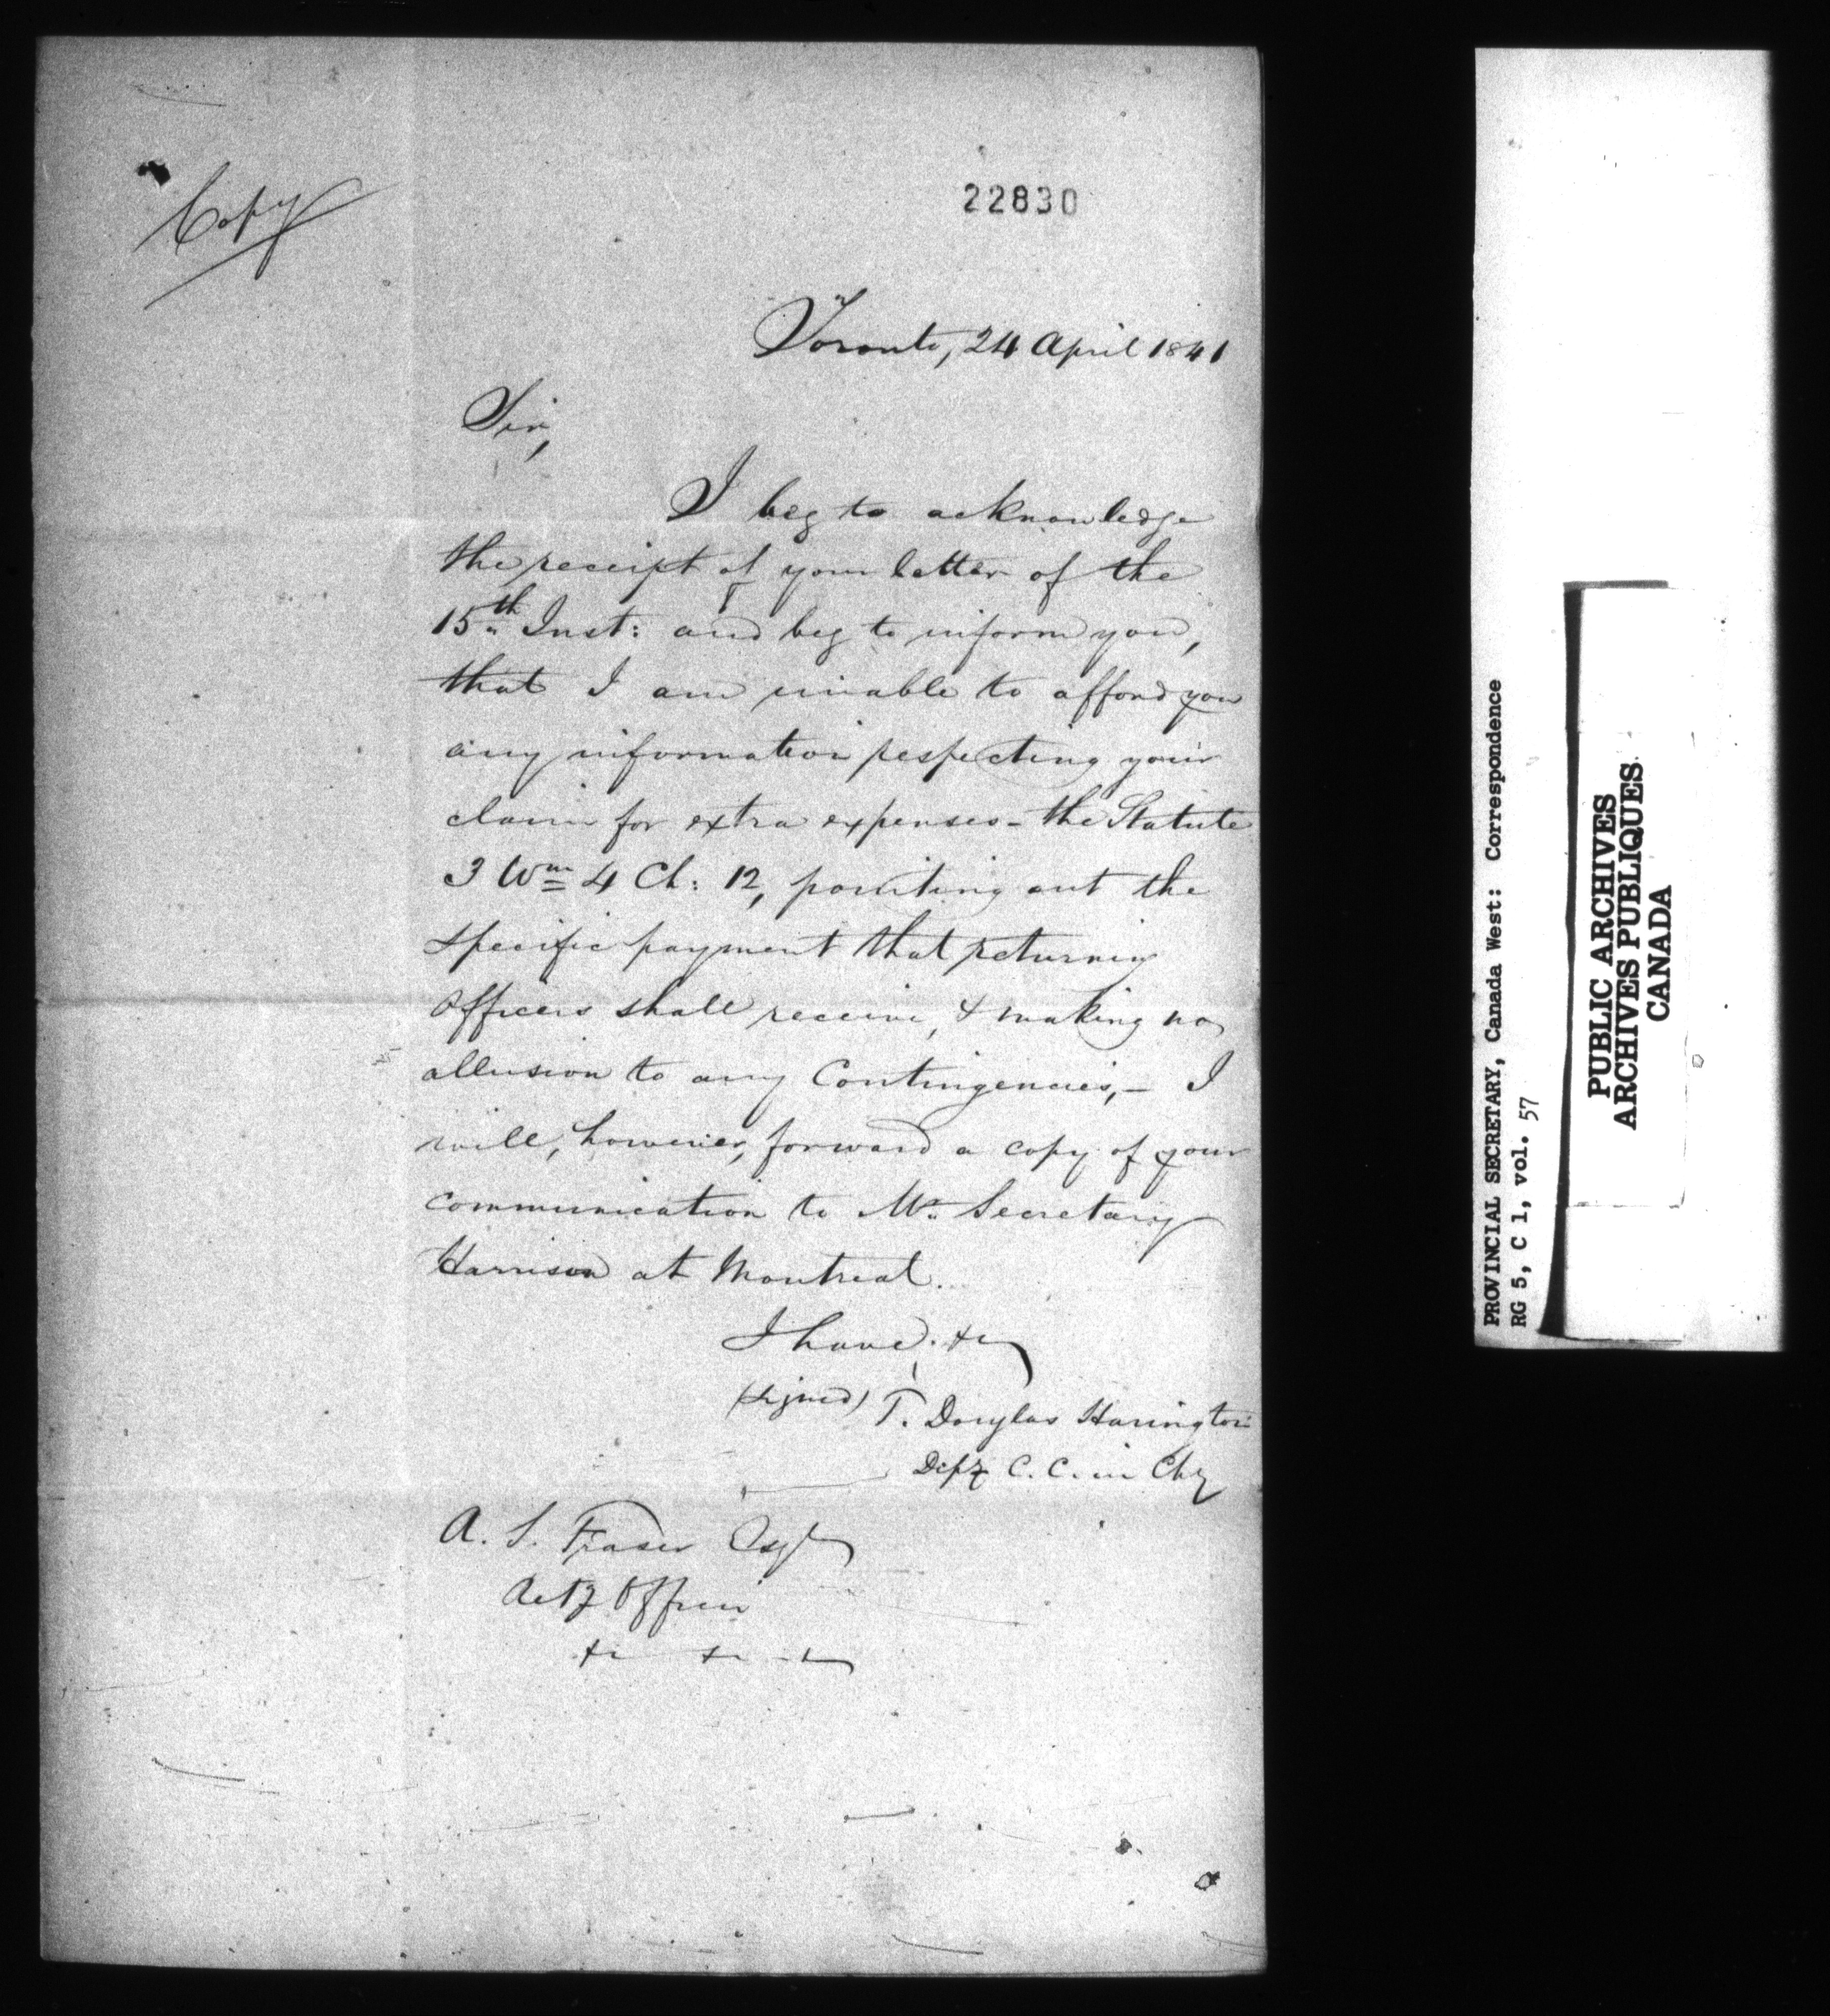 Copy
22830
Toronto, 24 April 1841
Sir,
I beg to acknowledge
the receipt of your letter of the
15th Inst: and beg to inform you,
that I am unable to afford you
any information respecting your
claim for extra expenses - the Statute
3 Wm 4 Ch: 12, pointing out the
specific payment that returning
Officers shall receive, & making no
allusion to any Contingencies, - I
will, however, forward a copy of your
communication to Mr. Secretary
Harrison at Montreal.
I have &c
(signed) T. Douglas Harington
Depy C. C. in Chy
A. S. Fraser Esqr
Retg Officer
&c &c &c
PROVINCIAL SECRETARY, Canada West: Correspondence
RG 5, C 1, vol. 57
PUBLIC ARCHIVES
ARCHIVES PUBLIQUES
CANADA